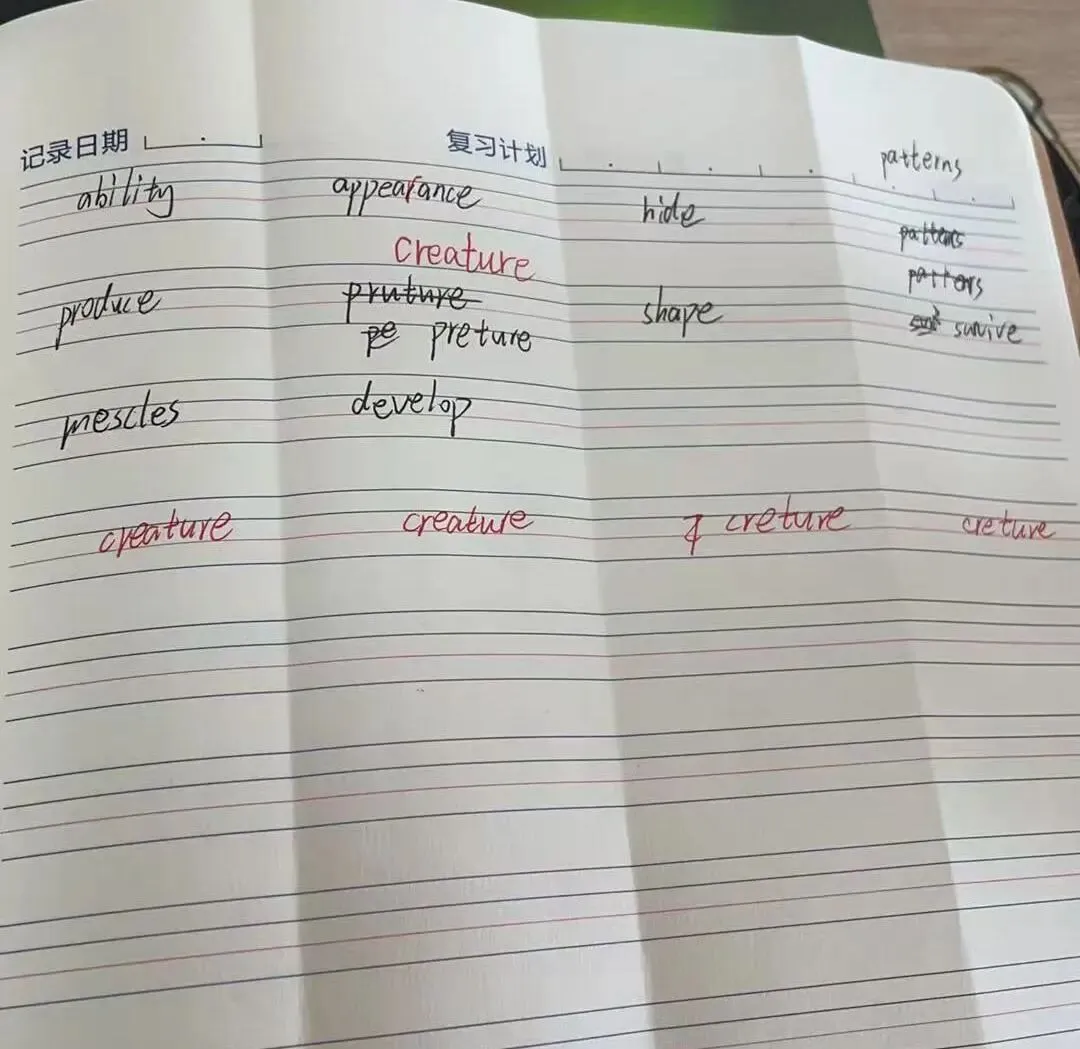 记录日期 复习计划 patterns
ability appearance hide
creature pattens
produce pruture shape pattors
pe preture survive
mescles develop
creature creature creture creture